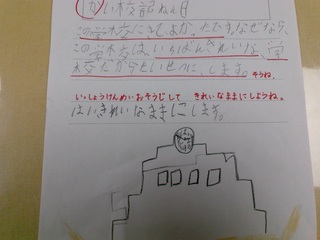 かい校記ねん日
この学校にきてよかったです。なぜなら、
この学校はいちばんきれいな、学
校だからたいせつに、します。
そうね。
いっしょうけんめいおそうじして きれいなままにしようね。
はいきれいなままにします。